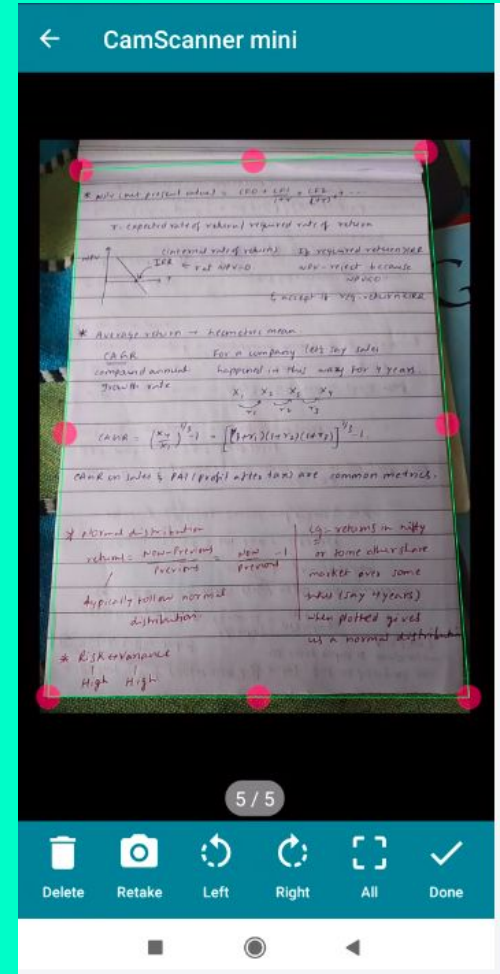 CamScanner mini
* NPV (net present value) = CF0 + CF1/1+r + CF2/(1+r)² + ...
r - expected rate of return / required rate of return
NPV
(internal rate of return)
IRR ← r at NPV=0
r
If required return > IRR
NPV - reject because
NPV<0
& accept if req. return < IRR
* Average return → Geometric mean
CAGR
compound annual
growth rate
For a company let's say sales
happened in this way for 4 years.
X₁ X₂ X₃ X₄
r₁ r₂ r₃
CAGR = (X₄/X₁)^1/3 -1 = [(1+r₁)(1+r₂)(1+r₃)]^1/3 -1
CAGR in sales & PAT (profit after tax) are common metrics.
* Normal distribution
return = Now-Previous/Previous = Now/Previous -1
typically follow normal
distribution.
Eg - returns in nifty
or some other share
market over some
(say 4 years)
when plotted gives
us a normal distribution
* Risk ↔ variance
High High
5 / 5
Delete Retake Left Right All Done